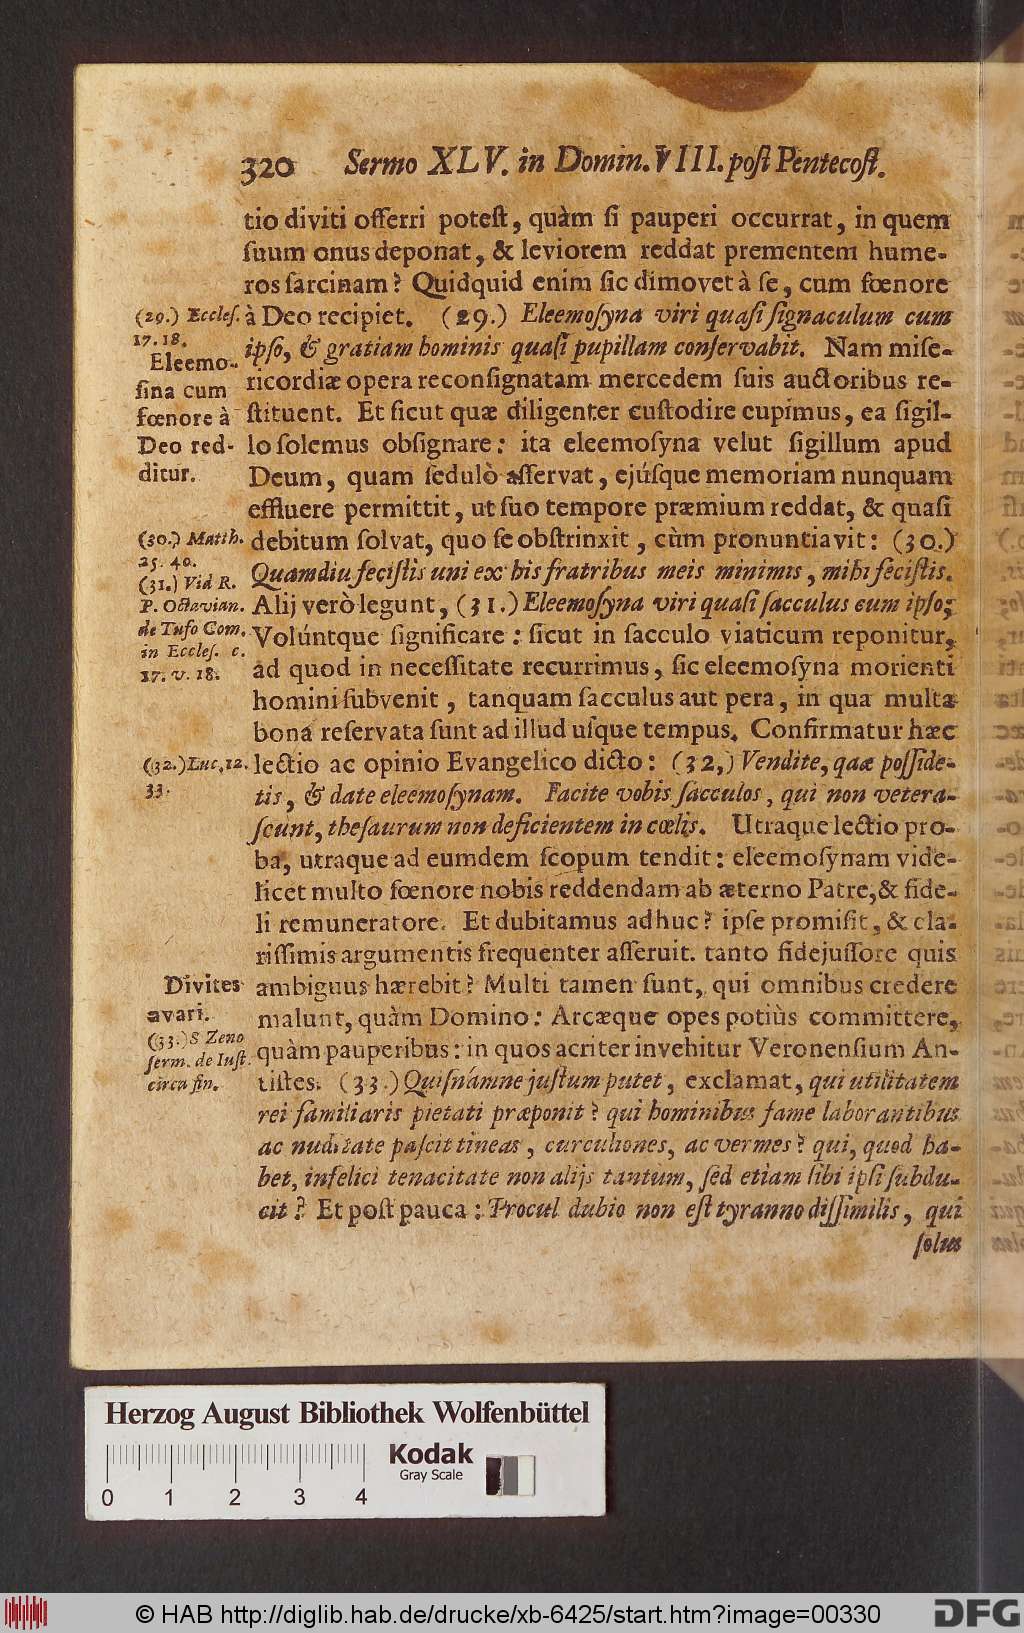 320 Sermo XLV. in Domin. VIII. post Pentecost.
tio diviti offerri potest, quàm si pauperi occurrat, in quem
suum onus deponat, & leviorem reddat prementem hume-
ros sarcinam? Quidquid enim sic dimovet à se, cum fœnore
à Deo recipiet. (29.) Eleemosyna viri quasi signaculum cum
ipso, & gratiam hominis quasi pupillam conservabit. Nam mise-
ricordiæ opera reconsignatam mercedem suis auctoribus re-
stituent. Et sicut quæ diligenter custodire cupimus, ea sigil-
lo solemus obsignare: ita eleemosyna velut sigillum apud
Deum, quam sedulò asservat, ejúsque memoriam nunquam
effluere permittit, ut suo tempore præmium reddat, & quasi
debitum solvat, quo se obstrinxit, cùm pronuntiavit: (30.)
Quamdiu fecistis uni ex his fratribus meis minimis, mihi fecistis.
Alij verò legunt, (31.) Eleemosyna viri quasi sacculus cum ipso;
Volúntque significare: sicut in sacculo viaticum reponitur,
ad quod in necessitate recurrimus, sic eleemosyna morienti
homini subvenit, tanquam sacculus aut pera, in qua multa
bona reservata sunt ad illud usque tempus. Confirmatur hæc
lectio ac opinio Evangelico dicto: (32,) Vendite, qaæ posside-
tis, & date eleemosynam. Facite vobis sacculos, qui non vetera-
scunt, thesaurum non deficientem in cœlis. Utraque lectio pro-
ba, utraque ad eumdem scopum tendit: eleemosynam vide-
licet multo fœnore nobis reddendam ab æterno Patre, & fide-
li remuneratore. Et dubitamus adhuc? ipse promisit, & cla-
rissimis argumentis frequenter asseruit. tanto fidejussore quis
ambiguus hærebit? Multi tamen sunt, qui omnibus credere
malunt, quàm Domino: Arcæque opes potiùs committere,
quàm pauperibus: in quos acriter invehitur Veronensium An-
tistes. (33.) Quisnámne justum putet, exclamat, qui utilitatem
rei familiaris pietati præponit? qui hominibus fame laborantibus
ac nuditate pascit tineas, curculiones, ac vermes? qui, quod ha-
bet, infelici tenacitate non alijs tantùm, sed etiam sibi ipsi subdu-
cit? Et post pauca: Procul dubio non est tyranno dissimilis, qui
solus
(29.) Eccles.
17. 18.
Eleemo-
sina cum
fœnore à
Deo red-
ditur.
(30.) Matth.
25. 40.
(31.) Vid R.
P. Octavian.
de Tufo Com.
in Eccles. c.
17. v. 18.
(32.) Luc, 12.
33.
Divites
avari.
(33.) S Zeno
serm. de Iust.
circa fin.
Herzog August Bibliothek Wolfenbüttel
Kodak
Gray Scale
0 1 2 3 4
© HAB http://diglib.hab.de/drucke/xb-6425/start.htm?image=00330
DFG